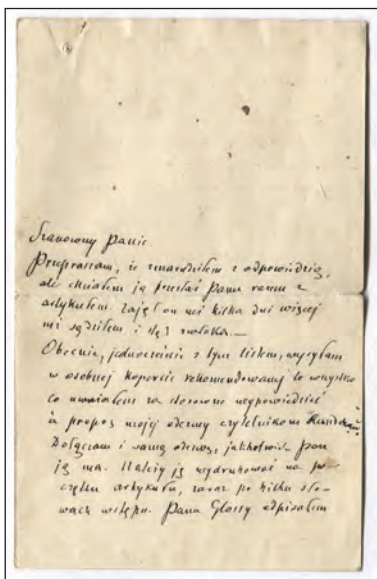 Szanowny Panie.
Przepraszam, że zmarudziłem z odpowiedzią,
ale chciałem ją przesłać Panu razem z
artykułem. Zajął on mi kilka dni więcej
niż sądziłem i stąd zwłoka.—
Obecnie, jednocześnie z tym listem, wysyłam
w osobnej kopercie rekomendowanej to wszystko
co uważałem za stosowne wypowiedzieć
à propos mojej odezwy czytelnikom
Dołączam i samą odezwę, jakkolwiek Pan
ją ma. Należy ją wydrukować na po-
czątku artykułu, zaraz po kilku sło-
wach wstępu. Panu odpisałem